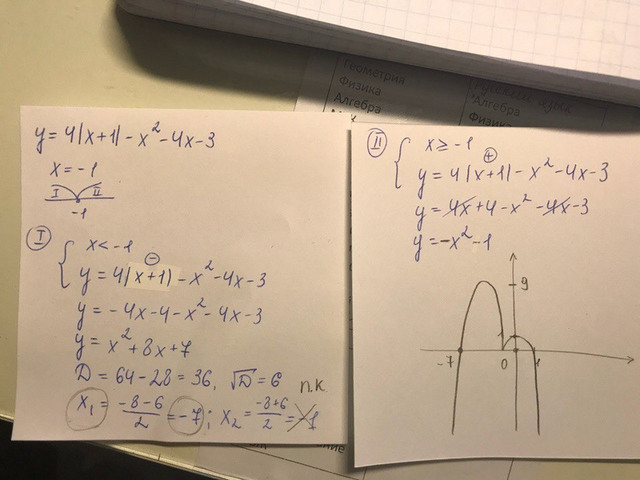 Геометрия
Физика
Алгебра
Русский язык
Алгебра
Физика
y = 4|x+1| - x² - 4x - 3
x = -1
I II
-1
I
{ x < -1
⊖
y = 4|x+1| - x² - 4x - 3
y = -4x - 4 - x² - 4x - 3
y = x² + 8x + 7
D = 64 - 28 = 36, √D = 6 п.к.
x₁ = (-8-6)/2 = -7; x₂ = (-8+6)/2 = -1
II
{ x ≥ -1
⊕
y = 4|x+1| - x² - 4x - 3
y = 4x + 4 - x² - 4x - 3
y = -x² - 1
9
1
-7 0 1
ние